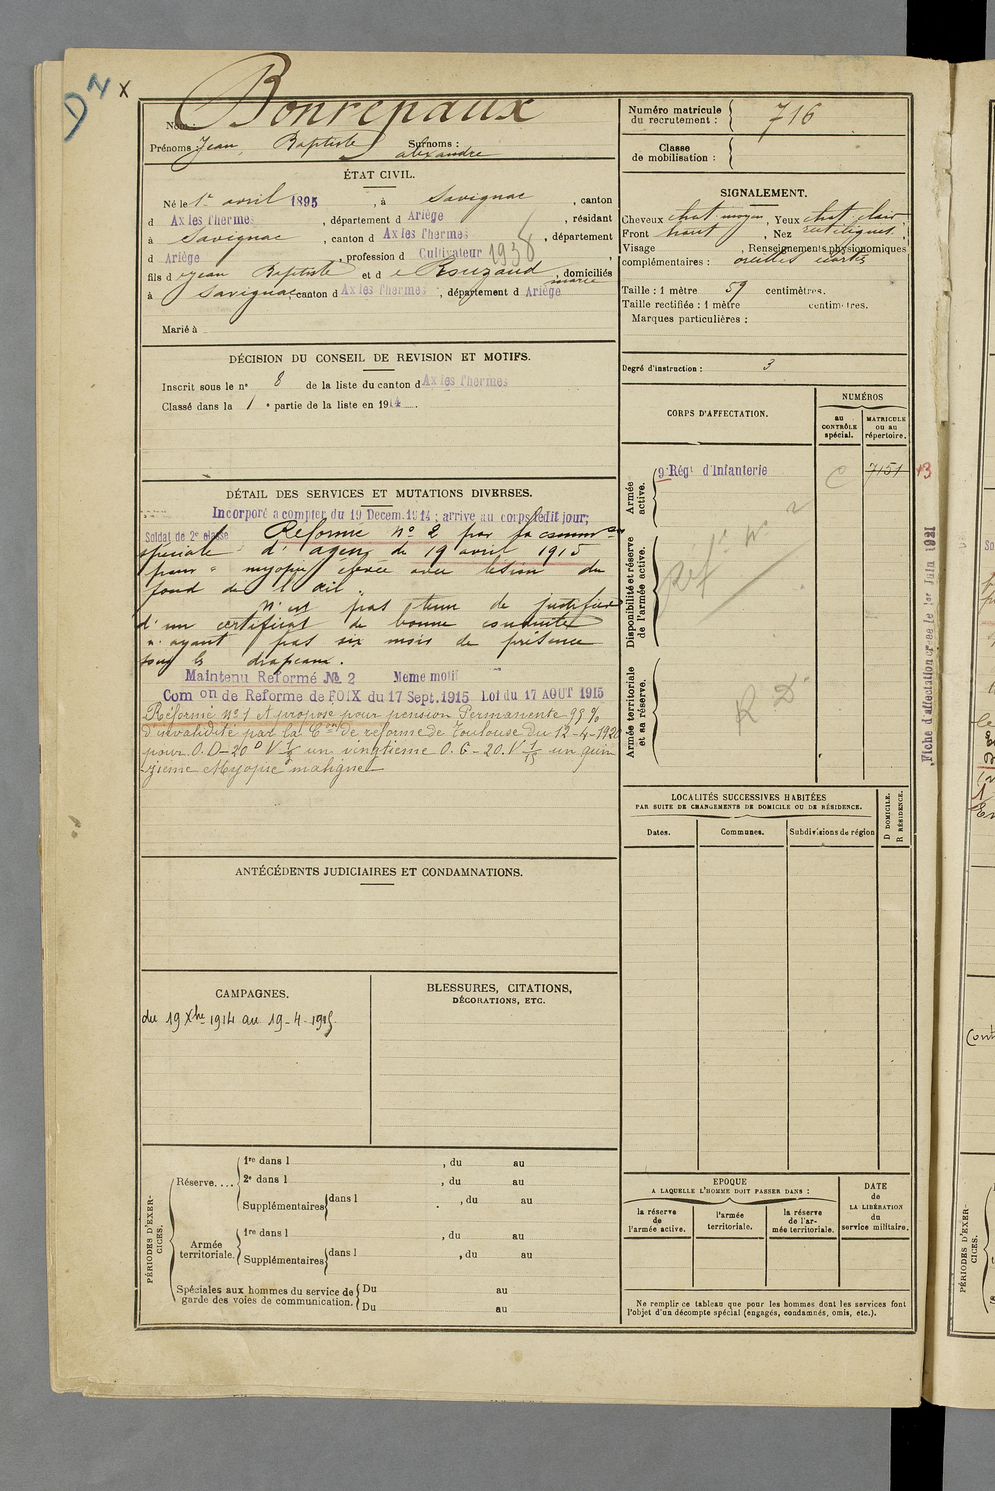 D2 x
Bonrepaux
Nom :
Prénoms : Jean Baptiste Surnoms : alexandre
ÉTAT CIVIL.
Né le 1er avril 1895, à Savignac, canton
d Ax les Thermes, département d Ariège, résidant
à Savignac, canton d Ax les Thermes, département
d Ariège, profession d Cultivateur 1938,
fils d e Jean Baptiste et d e Rouzaud marie, domiciliés
à Savignac, canton d Ax les Thermes, département d Ariège
Marié à
DÉCISION DU CONSEIL DE REVISION ET MOTIFS.
Inscrit sous le n° 8 de la liste du canton d Ax les Thermes
Classé dans la 1e partie de la liste en 1914.
DÉTAIL DES SERVICES ET MUTATIONS DIVERSES.
Incorporé à compter du 19 Decem. 1914 ; arrivé au corps ledit jour;
Soldat de 2e classe Réformé n° 2 par la comm
spéciale d'agen de 19 avril 1915
pour " myopie élevée avec lésion du
fond de l'œil.
N'est pas tenu de justifier
d'un certificat de bonne conduite
n'ayant pas six mois de présence
sous les drapeaux.
Maintenu Reformé № 2 Meme motif
Com on de Reforme de FOIX du 17 Sept. 1915 Loi du 17 AOUT 1915
Réformé n° 1 et proposé pour pension Permanente 99 %
d'invalidité par la Con de réforme de Toulouse du 12-4-1920
pour O.D-20° V 1/0 un vingtième O.G-20. V 1/15 un quin
zième Myopie maligne
ANTÉCÉDENTS JUDICIAIRES ET CONDAMNATIONS.
CAMPAGNES.
du 19 Xbre 1914 au 19-4-1915
BLESSURES, CITATIONS,
DÉCORATIONS, ETC.
PÉRIODES D'EXERCICES.
Réserve....
1re dans l , du au
2e dans l , du au
Supplémentaires dans l , du au
Armée territoriale.
1re dans l , du au
Supplémentaires dans l , du au
Spéciales aux hommes du service de garde des voies de communication.
Du au
Du au
Numéro matricule du recrutement : 716
Classe de mobilisation :
SIGNALEMENT.
Cheveux chat moyen, Yeux chat clair
Front haut, Nez rectiligne
Visage , Renseignements physionomiques
complémentaires : oreilles écartées
Taille : 1 mètre 59 centimètres.
Taille rectifiée : 1 mètre centimètres.
Marques particulières :
Degré d'instruction : 3
CORPS D'AFFECTATION.
NUMÉROS
au CONTRÔLE spécial.
MATRICULE ou au répertoire.
Armée active.
9e Régt d'Infanterie C 7151 13
Disponibilité et réserve de l'armée active.
réfé N° 2
Armée territoriale et sa réserve.
R D
Fiche d'affectation créée le 1er Juin 1921
LOCALITÉS SUCCESSIVES HABITÉES
PAR SUITE DE CHANGEMENTS DE DOMICILE OU DE RÉSIDENCE.
Dates. Communes. Subdivisions de région
D DOMICILE.
R RÉSIDENCE.
EPOQUE
A LAQUELLE L'HOMME DOIT PASSER DANS :
la réserve de l'armée active.
l'armée territoriale.
la réserve de l'armée territoriale.
DATE de LA LIBÉRATION du service militaire.
Ne remplir ce tableau que pour les hommes dont les services font
l'objet d'un décompte spécial (engagés, condamnés, omis, etc.).
PÉRIODES D'EXERCICES.